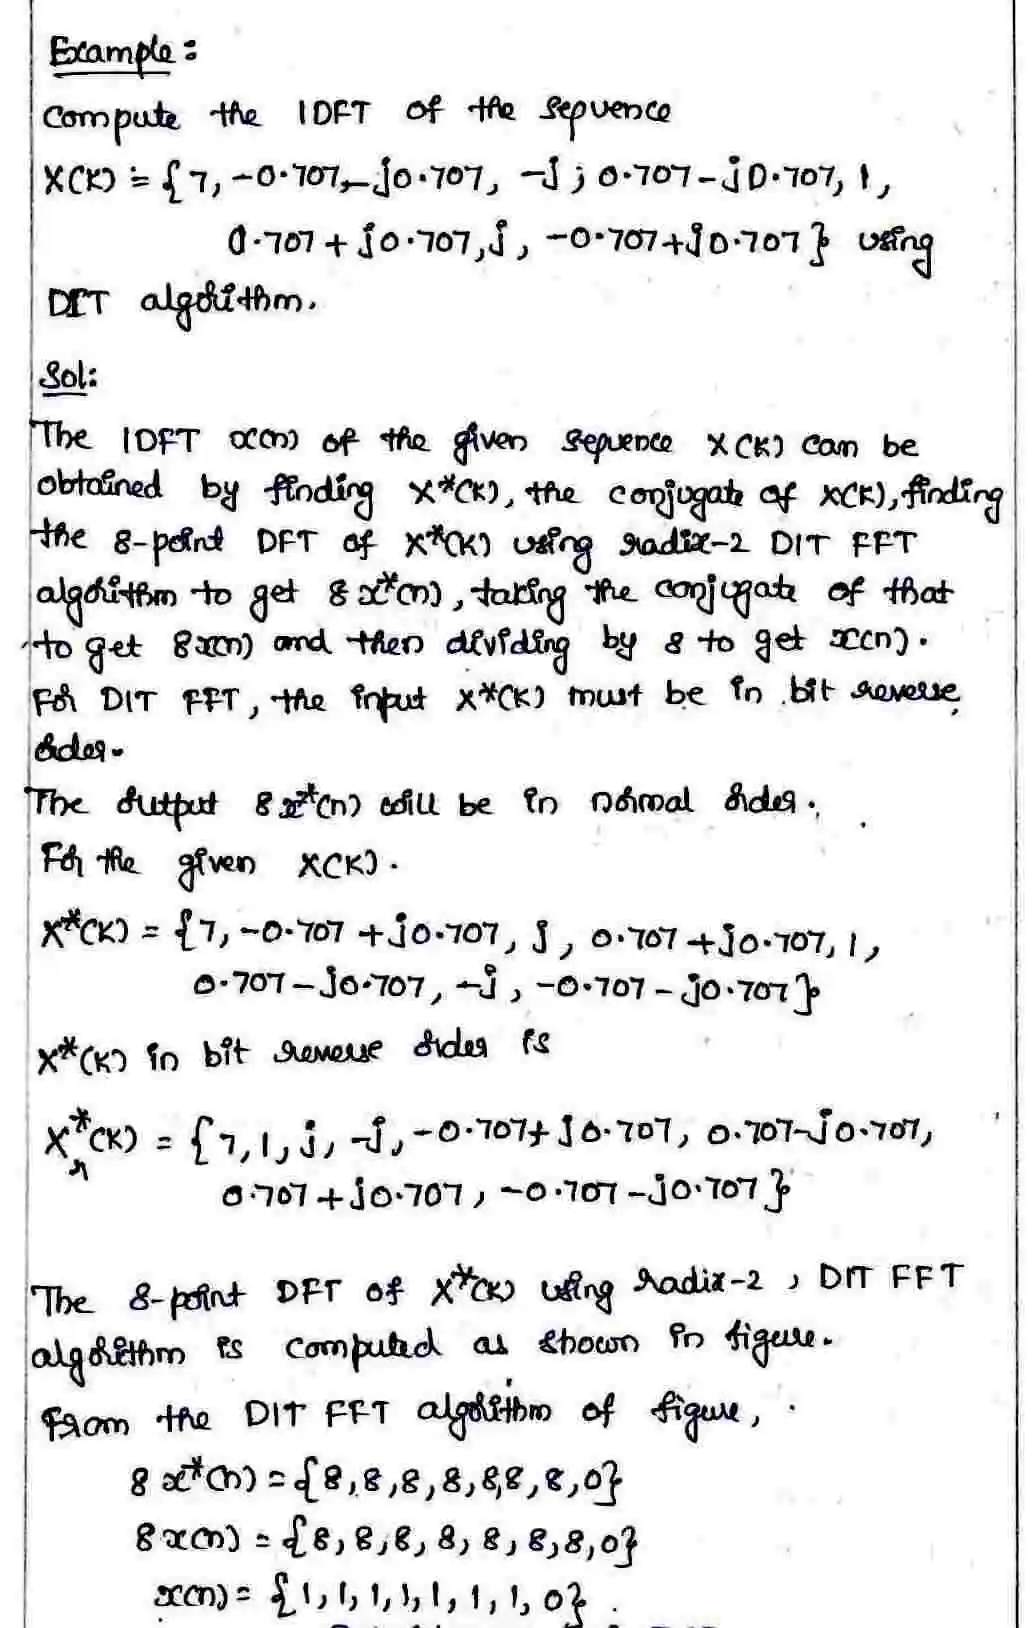 Example:
Compute the IDFT of the sequence
X(K) = {7, -0.707-j0.707, -j, 0.707-j0.707, 1,
0.707 + j0.707, j, -0.707+j0.707} using
DIT algorithm.
Sol:
The IDFT x(n) of the given sequence X(K) can be
obtained by finding X*(K), the conjugate of X(K), finding
the 8-point DFT of X*(K) using radix-2 DIT FFT
algorithm to get 8x*(n), taking the conjugate of that
to get 8x(n) and then dividing by 8 to get x(n).
For DIT FFT, the input X*(K) must be in bit reverse
order.
The output 8x*(n) will be in normal order.
For the given X(K).
X*(K) = {7, -0.707 + j0.707, j, 0.707 + j0.707, 1,
0.707 - j0.707, -j, -0.707 - j0.707}
X*(K) in bit reverse order is
X*r(K) = {7, 1, j, -j, -0.707 + j0.707, 0.707-j0.707,
0.707 + j0.707, -0.707 - j0.707}
The 8-point DFT of X*(K) using radix-2, DIT FFT
algorithm is computed as shown in figure.
From the DIT FFT algorithm of figure,
8x*(n) = {8,8,8,8,8,8,8,0}
8x(n) = {8,8,8,8,8,8,8,0}
x(n) = {1,1,1,1,1,1,1,0}.